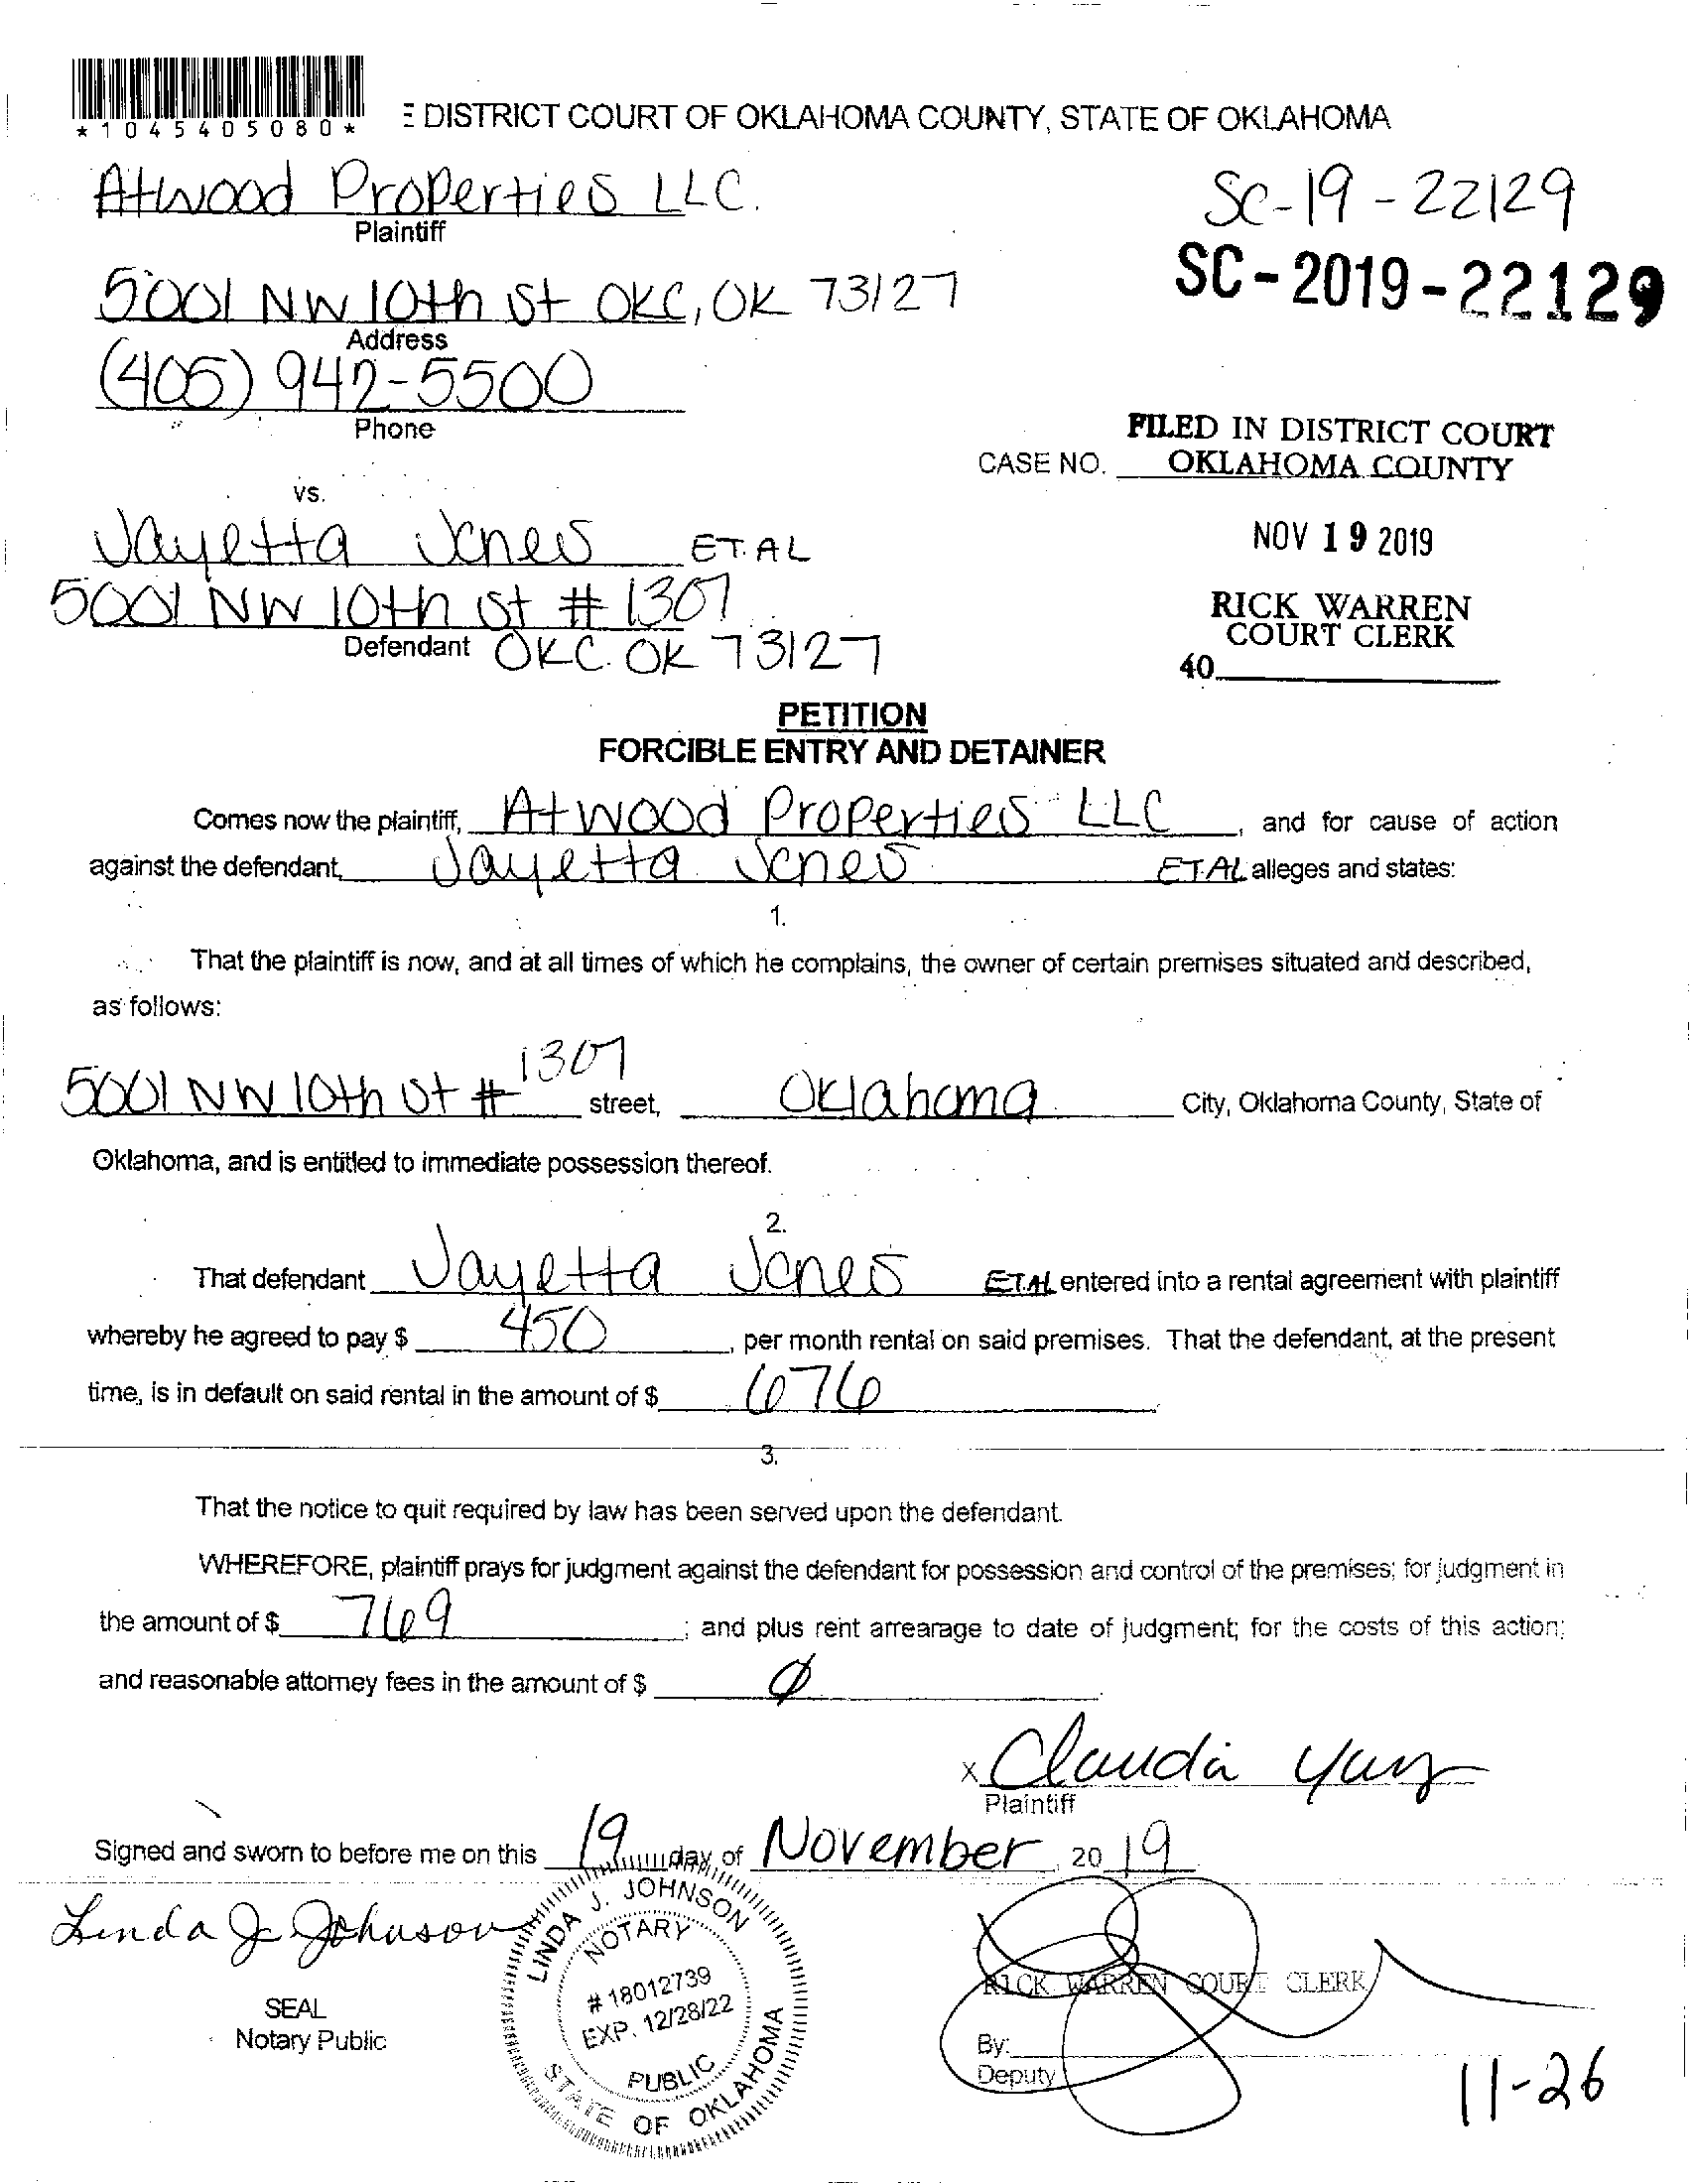 *1045405080*
E DISTRICT COURT OF OKLAHOMA COUNTY, STATE OF OKLAHOMA
Atwood Properties LLC.
Plaintiff
SC-19-22129
SC-2019-22129
5001 NW 10th St OKC, OK 73127
Address
(405) 942-5500
Phone
FILED IN DISTRICT COURT
CASE NO. OKLAHOMA COUNTY
vs.
NOV 19 2019
Jayetta Jones ET. AL
5001 NW 10th St # 1307
Defendant OKC. OK 73127
RICK WARREN
COURT CLERK
40
PETITION
FORCIBLE ENTRY AND DETAINER
Comes now the plaintiff, Atwood Properties LLC, and for cause of action
against the defendant, Jayetta Jones ET.AL alleges and states:
1.
That the plaintiff is now, and at all times of which he complains, the owner of certain premises situated and described,
as follows:
5001 NW 10th St # 1307 street, Oklahoma City, Oklahoma County, State of
Oklahoma, and is entitled to immediate possession thereof.
2.
That defendant Jayetta Jones ET.AL entered into a rental agreement with plaintiff
whereby he agreed to pay $ 450, per month rental on said premises. That the defendant, at the present
time, is in default on said rental in the amount of $ 676.
3.
That the notice to quit required by law has been served upon the defendant.
WHEREFORE, plaintiff prays for judgment against the defendant for possession and control of the premises; for judgment in
the amount of $ 769; and plus rent arrearage to date of judgment; for the costs of this action;
and reasonable attorney fees in the amount of $ Ø.
X Claudia
Plaintiff
Signed and sworn to before me on this 19 day of November, 2019
Linda J. Johnson
SEAL
Notary Public
LINDA J. JOHNSON
NOTARY
# 18012739
EXP. 12/28/22
PUBLIC
STATE OF OKLAHOMA
RICK WARREN COURT CLERK
By:
Deputy
11-26